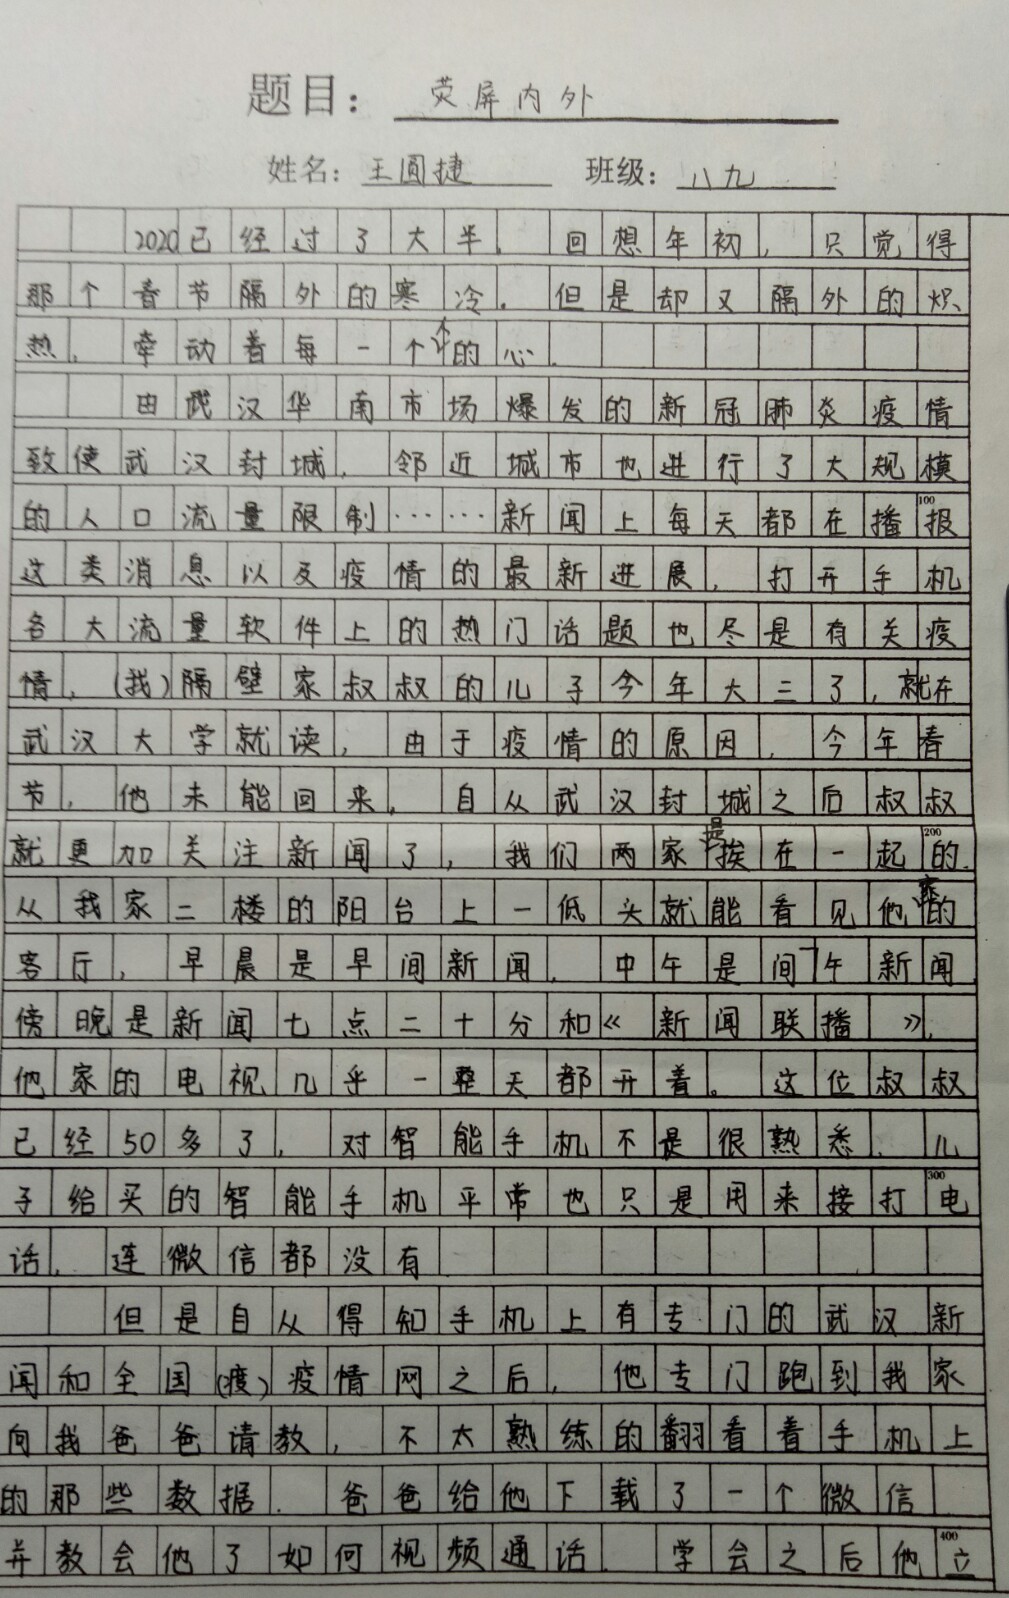 题目：荧屏内外
姓名：王圆捷 班级：八九
2020已经过了大半，回想年初，只觉得
那个春节隔外的寒冷。但是却又隔外的炽
热，牵动着每一个人的心。
由武汉华南市场爆发的新冠肺炎疫情
致使武汉封城，邻近城市也进行了大规模
的人口流量限制……新闻上每天都在播报
100
这类消息以及疫情的最新进展，打开手机
各大流量软件上的热门话题也尽是有关疫
情，(我)隔壁家叔叔的儿子今年大三了，就在
武汉大学就读，由于疫情的原因，今年春
节，他未能回来。自从武汉封城之后叔叔
就更加关注新闻了，我们两家是挨在一起的.
200
从我家二楼的阳台上一低头就能看见他家的
客厅，早晨是早间新闻，中午是间午新闻，
傍晚是新闻七点二十分和《新闻联播》，
他家的电视几乎一整天都开着。这位叔叔
已经50多了，对智能手机不是很熟悉、儿
子给买的智能手机平常也只是用来接打电
300
话，连微信都没有
但是自从得知手机上有专门的武汉新
闻和全国(疫)疫情网之后，他专门跑到我家
向我爸爸请教，不太熟练的翻看着手机上
的那些数据．爸爸给他下载了一个微信
并教会他了如何视频通话．学会之后他立
400